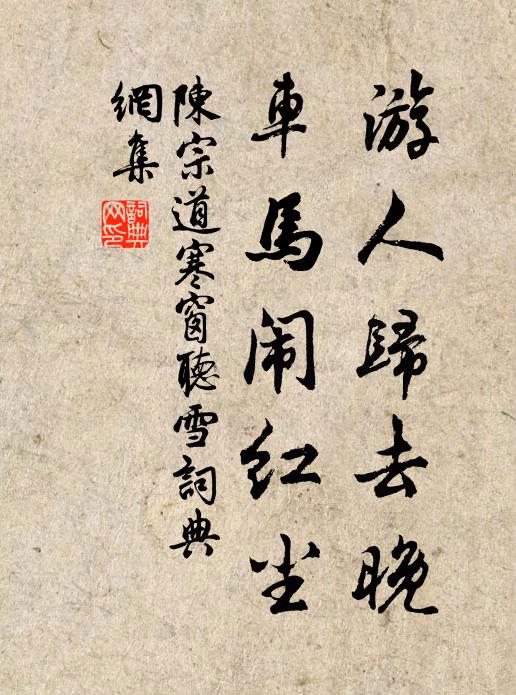 游人歸去晚
車馬闹紅尘
陳宗道寒窗聽雪詞典
網集
詞典
网印